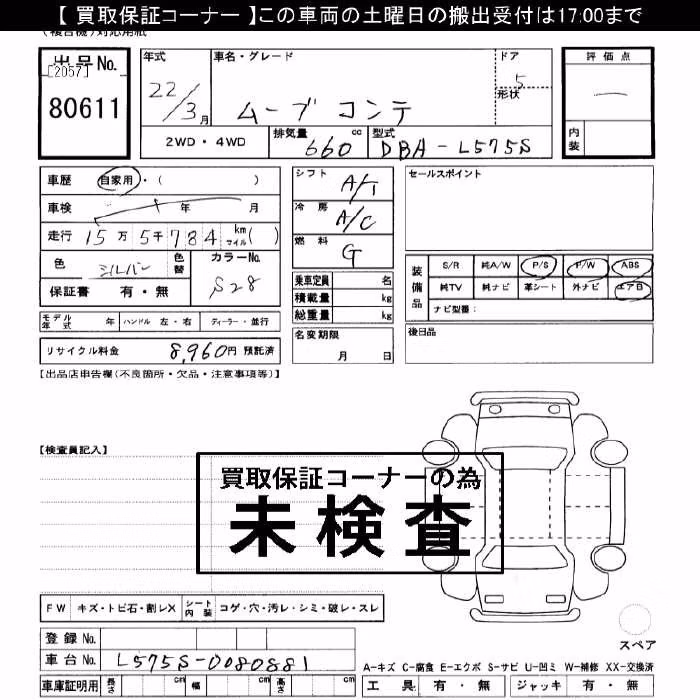 【 買取保証コーナー 】この車両の土曜日の搬出受付は17:00まで
出品 No.
[2057]
80611
年式
22/3月
車名・グレード
ムーブ コンテ
ドア
5
形状
評価点
内装
2WD・4WD
排気量 660 cc
型式 DBA-L575S
車歴 自家用・( )
車検 年 月
走行 15万5千784 km マイル( )
色 シルバー 色替
カラーNo. S28
保証書 有・無
シフト A/T
冷房 A/C
燃料 G
乗車定員 名
積載量 kg
総重量 kg
セールスポイント
装備品
S/R 純A/W P/S P/W ABS
純TV 純ナビ 革シート 外ナビ エアB
ナビ型番:
モデル年式 年 ハンドル 左・右 ディーラー・並行
名変期限
月 日
後日品
リサイクル料金 8,960円 預託済
【出品店申告欄(不良箇所・欠品・注意事項等)】
【検査員記入】
買取保証コーナーの為
未検査
FW キズ・トビ石・割レX シート内装 コゲ・穴・汚レ・シミ・破レ・スレ
スペア
登録 No.
車台 No. L575S-0080881
A-キズ C-腐食 E-エクボ S-サビ U-凹ミ W-補修 XX-交換済
車庫証明用 長さ cm 幅 cm 高さ cm
工具 有・無 ジャッキ 有・無